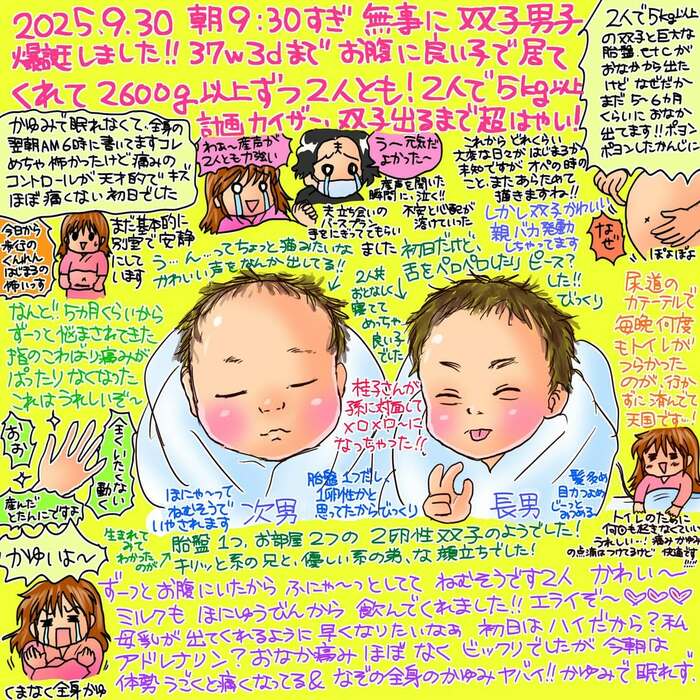 2025.9.30 朝9:30すぎ 無事に 双子男子
爆誕しました!! 37w3dまで お腹に良い子で居て
くれて 2600g以上ずつ2人とも! 2人で5kg以上
計画カイザー、双子出るまで超はやい!
2人で5kg以上
の双子と巨大な
胎盤、etcが
おなかから出た
けど なぜだか
まだ5~6ヵ月
くらいに おなか
出てます!!ボヨン
ボヨンしたかんじに
なぜ
ぽよぽよ
かゆみで眠れなくて、全身の
翌朝AM6時に書いてますコレ
めちゃ怖かったけど痛みの
コントロールが天才的でキズ
ほぼ痛くない初日でした
わぁ~産声が
2人とも力強い
う~元気だ
よかった~
産声を聞いた
瞬間に、泣く!!
不安と心配が
溶けていった
夫立ち会いの
手をにぎっててもらい
ました
これから どれくらい
大変な日々が はじまるか
未知ですが オペの時の
こと、またあらためて
描きますね!!
しかし双子かわいい
親バカ発動
しちゃってます
今日から
歩行の
くんれん
はじまるの
怖いっす
まだ基本的に
別室で安静
にして
います
う…ん…ってちょっと猫みたいな
かわいい声をなんか出してる!!
初日だけど、
舌をペロペロしたり ピース?
した!!
びっくり
2人共
おとなしく
寝てて
めっちゃ
良い子
でした
なんと!! 5ヵ月くらいから
ずーっと悩まされてきた
指のこわばり痛みが
ぱったりなくなった
これはうれしいぞ~
おお
全くいたくない
動く
産んだ
とたんにですよ
尿道の
カテーテルで
毎晩何度
もトイレが
つらかった
のが、行か
ずに済んでて
天国です…!
トイレのために
何回も起きなくていい
うれしい…! 痛みかゆみ
の点滴はつけてるけど 快適です
!!!
桂子さんが
孫に対面して
メロメロ~に
なっちゃった!!
胎盤1つだし、
1卵性かと
思ってたからびっくり
ほにゃ~って
ねむそうで
いやされます
次男
長男
髪多め
目力つよめ
じーっと
みつめる
生まれて
みて
わかった
のが
胎盤1つ、お部屋2つの 2卵性双子のようでした!
キリッと系の兄と、優しい系の弟、な 顔立ちでした!
かゆいよ~
くまなく全身かゆ
ずーっと お腹にいたから ふにゃ~っとしてて ねむそうです2人 かわいー
ミルクも ほにゅうびんから 飲んでくれました!! エライぞ~♡♡♡
母乳が 出てくれるように 早くなりたいなぁ 初日は ハイだから? 私
アドレナリン? おなか痛み ほぼ なく ビックリでしたが 今朝は
体勢 うごくと痛くなってる& なぞの全身のかゆみヤバイ!! かゆみで 眠れず.